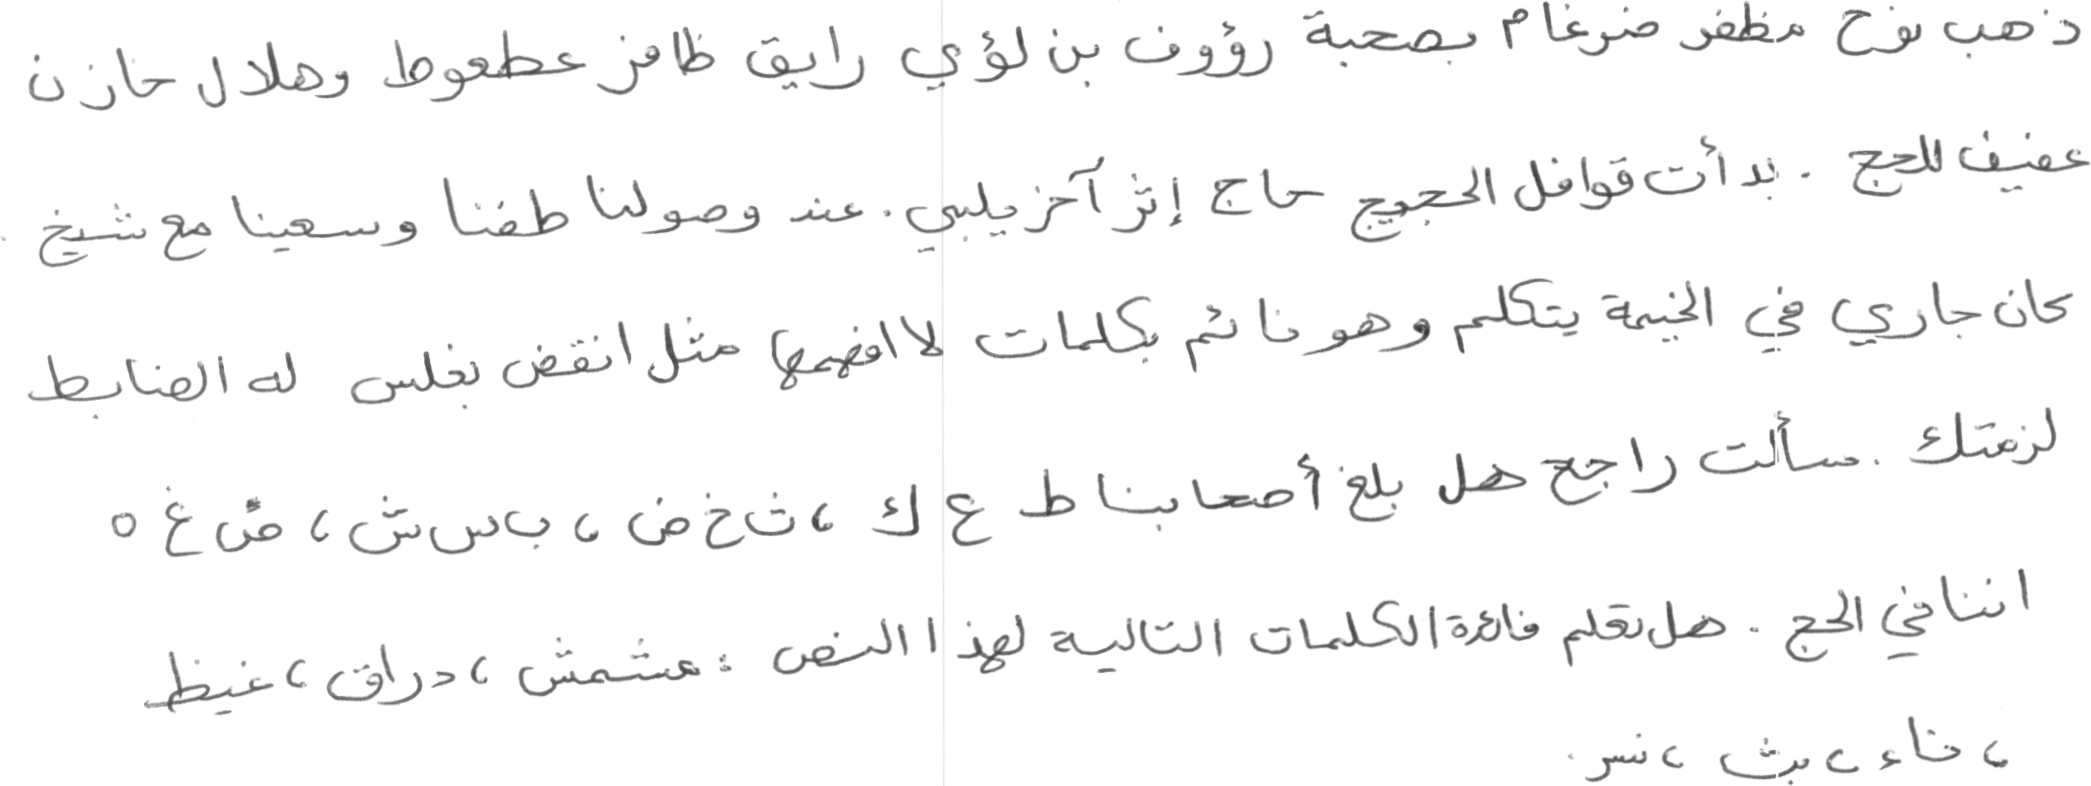 ذهب نوح مظفر ضرغام بصحبة رؤوف بن لؤي رايق ظافر عطعوط وهلال خازن
عفيف للحج . بدأت قوافل الحجيج حاج إثر آخر يلبي . عند وصولنا طفنا وسعينا مع شيخ .
كان جاري في الخيمة يتكلم وهو نائم بكلمات لا افهمها مثل انقض بغلس له الضابط
لزمتك . سألت راجح هل بلغ أصحابنا ط ع ك ، ث خ ض ، ب س ش ، ص غ ه
اننا في الحج . هل تعلم فائدة الكلمات التالية لهذا النص : مشمش ، دراق ، غيظ
، ناء ، بث ، نسر .